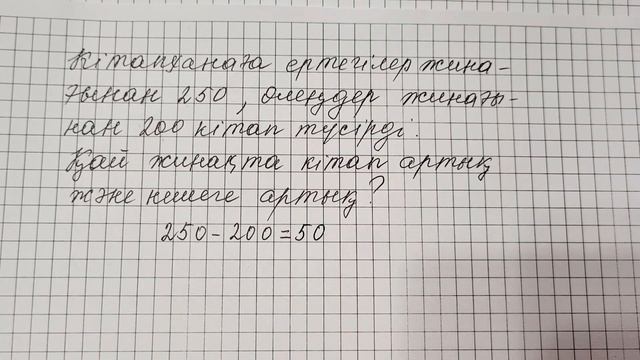 Кітапханаға ертегілер жина-
ғынан 250, өлеңдер жинағы-
нан 200 кітап түсірді.
Қай жинақта кітап артық
және нешеге артық?
250 - 200 = 50